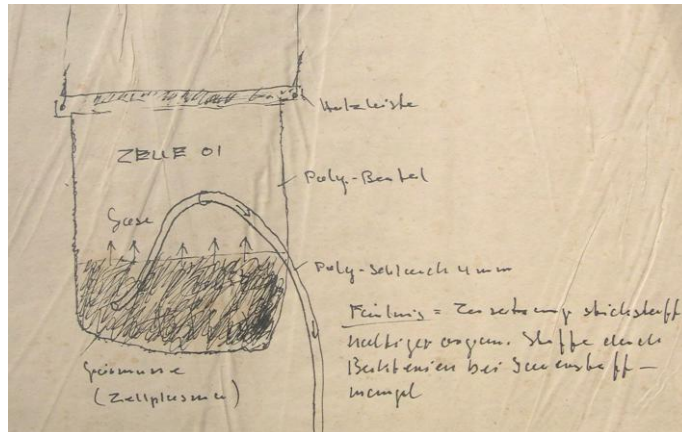 Holzleiste
ZELLE 01
Poly-Beutel
Gase
Poly-Schlauch 4mm
Fäulnis = Zersetzung stickstoff
haltiger organ. Stoffe durch
Bakterien bei Sauerstoff-
mangel
(Zellplasma)